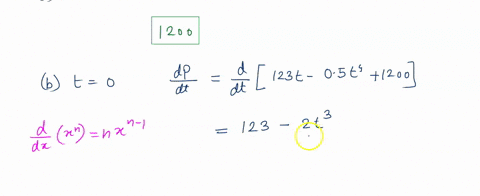 1200
(b) t = 0 dP/dt = d/dt [123t - 0.5t⁴ + 1200]
d/dx (xⁿ) = n xⁿ⁻¹ = 123 - 2t³